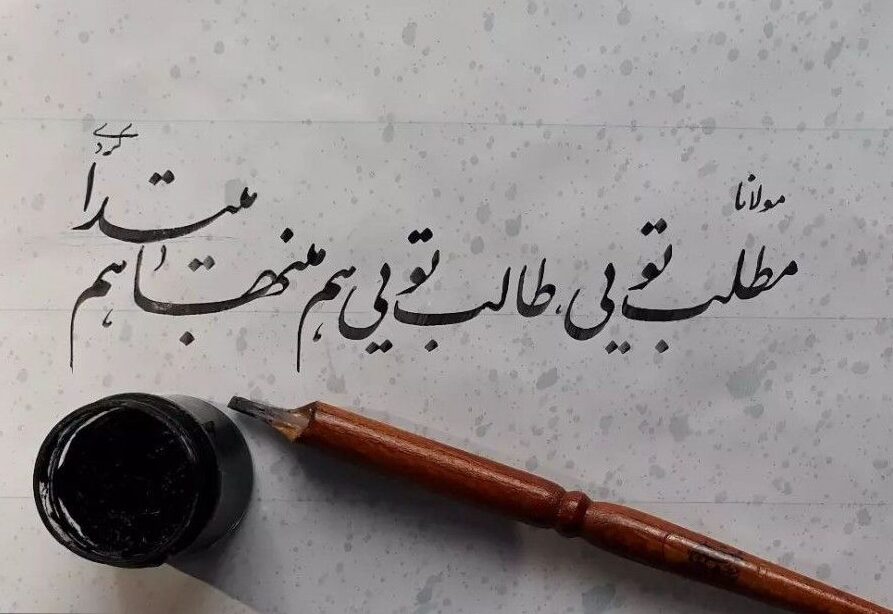 مولانا
مطلب تویی، طالب تویی هم منتها هم مبتدا